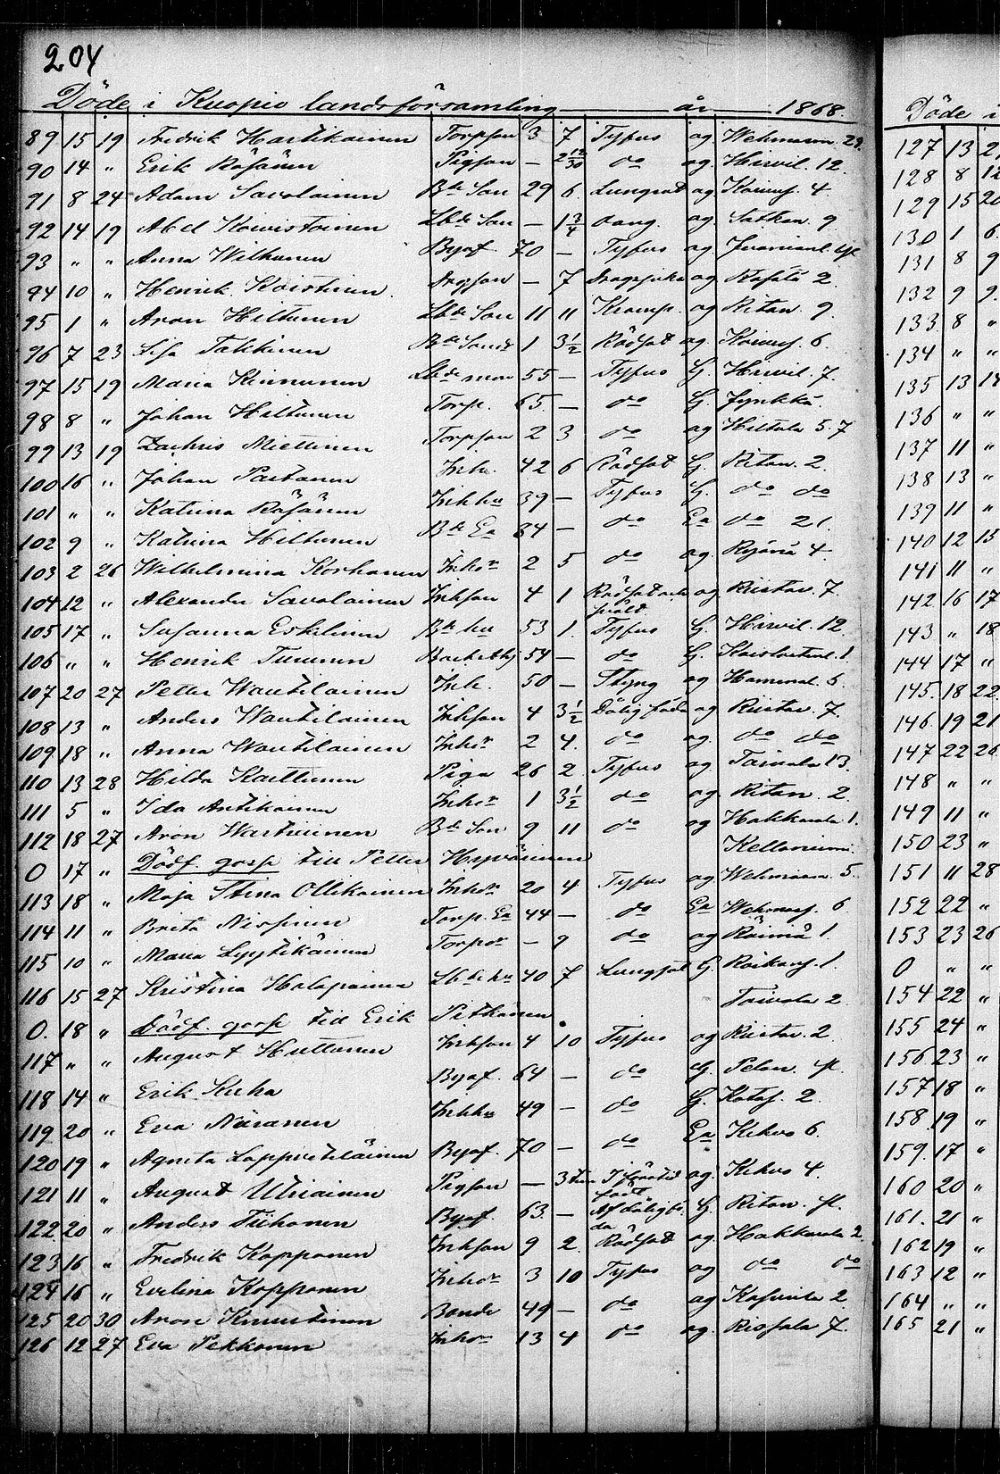 204
Döde i Kuopio landsförsamling år 1868.
89 15 19 Fredrik Hartikainen Torpson 3 7 Tyfus og Wehmasm. 22.
90 14 " Erik Räsänen Pigson — 2 12/30 do og Hirvil. 12.
91 8 24 Adam Savolainen Bde Son 29 6 Lungsot og Koivuj. 4.
92 14 19 Abel Koivistoinen Lbde Son — 1 3/4 og Jatkon. 9
93 " " Anna Miettinen Byaf. 70 — Tyfus og
94 10 " Henrik Koistinen — 7 og Kasala 2.
95 1 " Aron Hiltunen Lbde Son 11 11 Kramp. og Riton. 9.
96 7 23 Takkinen 1 3 1/2 Rödsot og Koivuj. 6.
97 15 19 Maria Kinnunen 55 — Tyfus G. Hirvil. 7.
98 8 " Johan Hiltunen Torp. 65 — do G. Jynkkä.
99 13 19 Zachris Miettinen Torpson 2 3 do og Hiltula 5. 7
100 16 " Johan Partanen Inh. 42 6 Rödsot G. Riton. 2.
101 " " Katrina Räsänen Inhhu 39 — Tyfus G. do do
102 9 " Katrina Hiltunen Bde Ea 84 — do Ea do 21.
103 2 26 Wilhelmina Korhonen Inhor 2 5 do og Ryönä 4.
104 12 " Alexander Savolainen Inhson 4 1 Rödsot och og Riistav. 7.
105 17 " Susanna Eskelinen Bde hu 53 1. Tyfus G. Hirvil. 12.
106 " " Henrik Turunen 54 — do G.
107 20 27 Petter Wäntiläinen Inh. 50 — Styng og Hamonal. 6.
108 13 " Anders Wäntiläinen Inhson 4 3 1/2 Dålig föda og Riistav. 7.
109 18 " Anna Wäntiläinen Inhor 2 4. do og. do do
110 13 28 Hilda Karttunen Piga 26 2 Tyfus og Toivala 13.
111 5 " Ida Antikainen Inhor 1 3 1/2 do og Riton. 2.
112 18 27 Aron Wartiainen Bde Son 9 11 do og Hakkarala 1.
0 17 " Dödf. goss till Petter Hyvärinen
113 18 " Maja Stina Ollikainen Inhor 20 4 Tyfus og Wehmasm. 5.
114 11 " Brita Nissinen Torp. Ea 44 — do Ea 6
115 10 " Maria Lyytikäinen Torpor — 9 do og Räimä 1.
116 15 27 Kristina Holopainen Lbde hu 40 7 Lungsot G. Räihänj. 1.
0. 18 " Dödf. goss till Erik Pitkänen Toivala 2
117 " " August Huttunen Inhson 4 10 Tyfus og Riistav. 2.
118 14 " Erik Kuha Byaf. 64 — do G. Pelon. fl.
119 20 " Eva Näränen Inhhu 49 — do G. Kotas. 2.
120 19 " Agneta Lappeteläinen Byaf. 70 — do Ea Kehvo 6.
121 11 " August Uhiainen Pigson — 3 tim og Kehvo 4.
122 20 " Anders Tiihonen Byaf. 63 — G. Riton. fl.
123 16 " Fredrik Kopponen Inhson 9 2. Rödsot og Hakkarala 2.
124 16 " Evelina Kopponen Inhor 3 10 Tyfus og do do
125 20 30 Aron Knuutinen Bonde 49 — do og 2.
126 12 27 Eva Pekkonen Inhor 13 4 do og. 7.
Döde i
127 13
128 8 12
129 15 20
130 1 6.
131 8 9
132 9 9.
133 8 "
134 " "
135 13 14
136 " "
137 11 "
138 13 "
139 11 "
140 12 15
141 11 "
142 16 17
143 " 18
144 17 "
145. 18 22
146. 19 21
147 22 26
148 " "
149 11 "
150 23 "
151 11 28
152 22 "
153 23 26
0 " "
154 22 "
155 24 "
156 23 "
157 18 "
158 19 "
159. 17 "
160 20 "
161. 21 "
162 19 "
163 12 "
164 " "
165 21 "